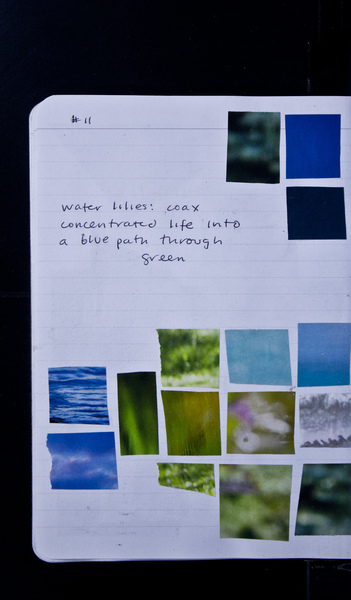 # 11
water lilies: coax
concentrated life into
a blue path through
green